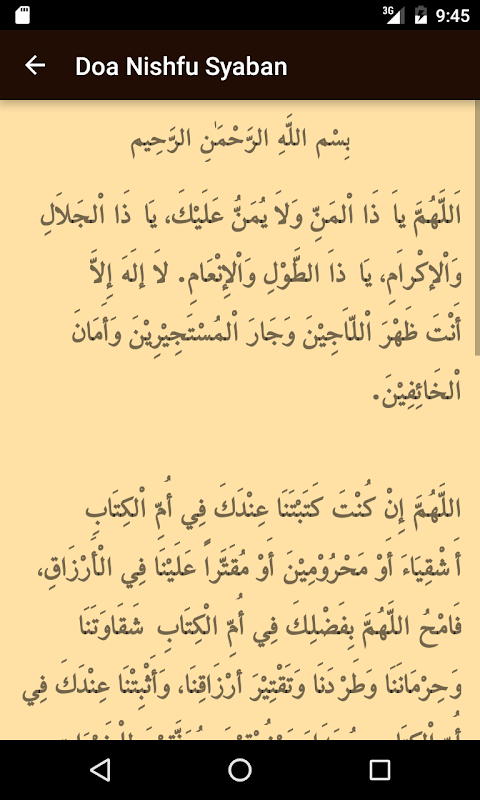 3G 9:45
Doa Nishfu Syaban
بِسْم اللَّهِ الرَّحْمَٰنِ الرَّحِيم
اَللَّهُمَّ ياَ ذَا الْمَنِّ وَلاَ يُمَنُّ عَلَيْكَ، يَا ذَا الْجَلاَلِ
وَاْلإِكْرَامِ، يَا ذاَ الطَّوْلِ وَاْلإِنْعَامِ. لاَ إِلَهَ إِلاَّ
أَنْتَ ظَهْرَ اْللاَّجِيْنَ وَجَارَ اْلمُسْتَجِيْرِيْنَ وَأَمَانَ
اْلخَائِفِيْنَ.
اللَّهُمَّ إِنْ كُنْتَ كَتَبْتَنَا عِنْدَكَ فِي أُمِّ الْكِتَابِ
أَشْقِيَاءَ أَوْ مَحْرُوْمِيْنَ أَوْ مُقَتَّراً عَلَيْنَا فِي الْأَرْزَاقِ،
فَامْحُ اللَّهُمَّ بِفَضْلِكَ فِي أُمِّ الْكِتَابِ شَقَاوَتَنَا
وَحِرْمَانَنَا وَطَرْدَنَا وَتَقْتِيْرَ أَرْزَاقِنَا، وَأَثْبِتْنَا عِنْدَكَ فِي